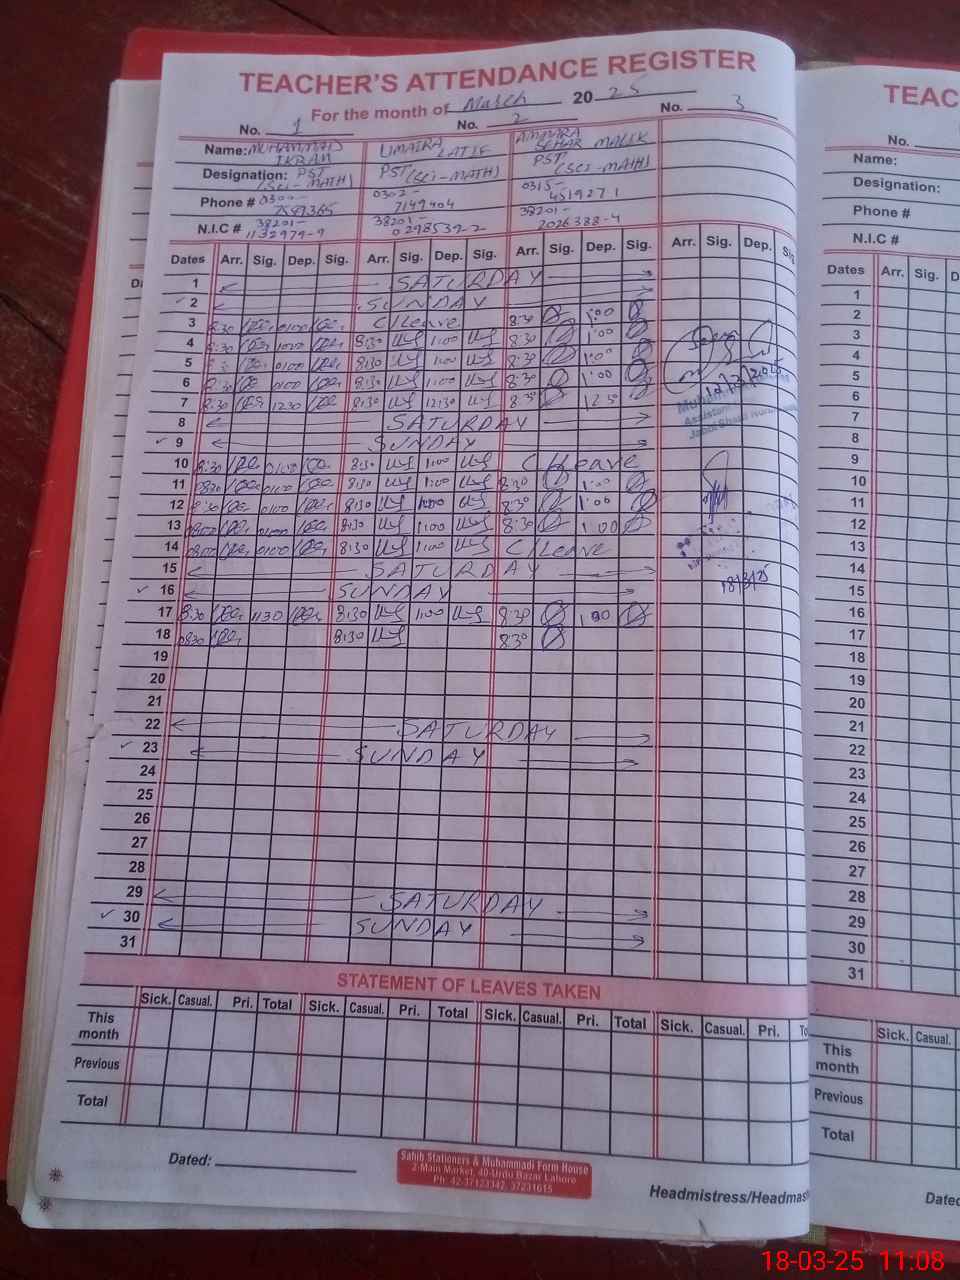 TEACHER'S ATTENDANCE REGISTER
For the month of March 20 25
No. 1 No. 2 No. 3
Name: MUHAMMAD IKRAM UMAIRA LATIF AMMARA SEHAR MALIK
Designation: PST (SCI-MATH) PST (SCI-MATH) PST (SCI-MATH)
Phone # 0300- 7597365 0302- 7149404 0315- 4519271
N.I.C # 38201- 1132979-9 38201- 0298539-2 38201- 2026388-4
Dates Arr. Sig. Dep. Sig. Arr. Sig. Dep. Sig. Arr. Sig. Dep. Sig. Arr. Sig. Dep. Sig
1 SATURDAY
2 SUNDAY
3 8:30 0100 C/Leave 8:30 1:00
4 8:30 0100 8:30 1:00 8:30 1:00
5 0100 8:30 1:00 8:30 1:00
6 8:30 0100 8:30 1:00 8:30 1:00
7 8:30 1230 8:30 12:30 8:30 1230
8 SATURDAY
9 SUNDAY
10 8:30 0100 8:30 1:00 C/Leave
11 0830 0100 8:30 1:00 8:30 1:00
12 8:30 0100 8:30 1:00 8:30 1:00
13 0100 8:30 1:00 8:30 1:00
14 0100 8:30 1:00 C/LEAVE
15 SATURDAY
16 SUNDAY
17 8:30 1130 8:30 1:00 8:30 1:00
18 0830 8:30 830
19
20
21
22 SATURDAY
23 SUNDAY
24
25
26
27
28
29 SATURDAY
30 SUNDAY
31
18/3/25
STATEMENT OF LEAVES TAKEN
Sick. Casual. Pri. Total Sick. Casual. Pri. Total Sick. Casual. Pri. Total Sick. Casual. Pri.
This month
Previous
Total
Dated:
Sahib Stationers & Muhammadi Form House
2-Main Market, 40-Urdu Bazar Lahore
Ph: 42-37123342, 37231615
Headmistress/Headmas
TEAC
No.
Name:
Designation:
Phone #
N.I.C #
Dates Arr. Sig. D
1
2
3
4
5
6
7
8
9
10
11
12
13
14
15
16
17
18
19
20
21
22
23
24
25
26
27
28
29
30
31
Sick. Casual.
This month
Previous
Total
Dated
18-03-25 11:08